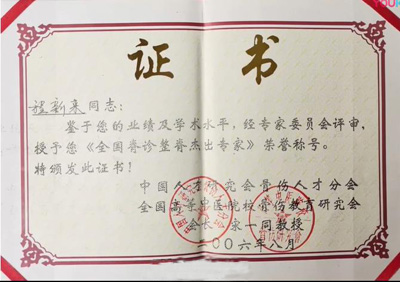 证书
程新来同志：
鉴于您的业绩及学术水平，经专家委员会评审，
授予您《全国脊诊整脊杰出专家》荣誉称号。
特颁发此证书！
中国人才研究会骨伤人才分会
全国高等中医院校骨伤教育研究会
会长 家一同教授
二00六年八月